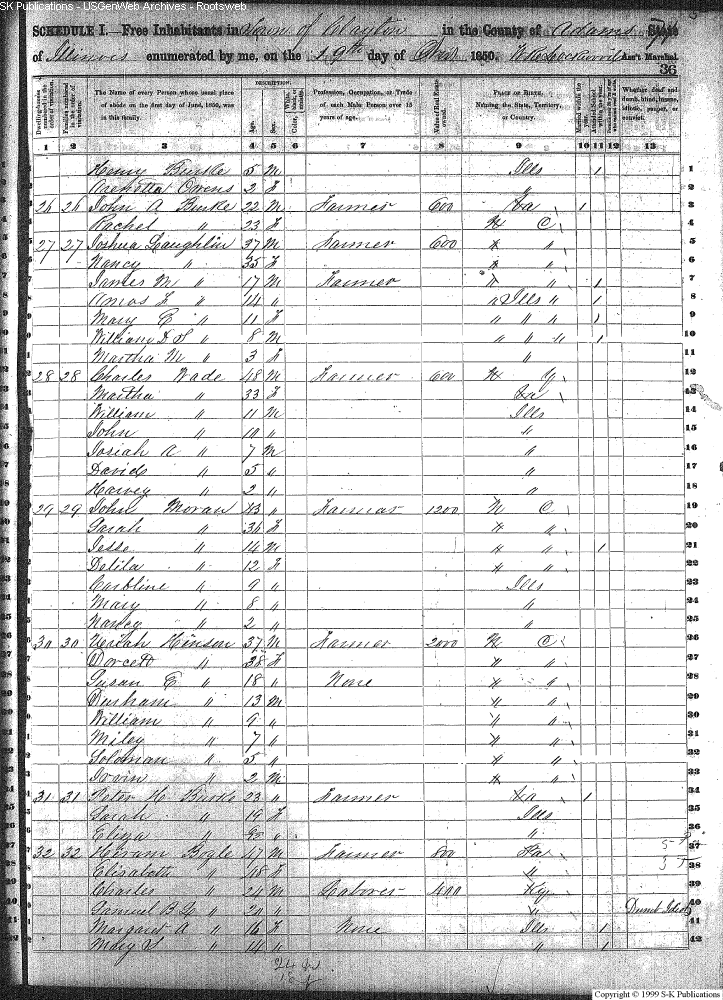 SK Publications - USGenWeb Archives - Rootsweb
SCHEDULE I. Free Inhabitants in Town of Clayton in the County of Adams State
of Illinois enumerated by me, on the 19th day of 1850. Ass't Marshal.
36
DESCRIPTION.
Dwelling-houses numbered in the order of visitation.
Families numbered in the order of visitation.
The Name of every Person whose usual place of abode on the first day of June, 1850, was in this family.
Age.
Sex.
Profession, Occupation, or Trade of each Male Person over 15 years of age.
Value of Real Estate owned.
PLACE OF BIRTH. Naming the State, Territory, or Country.
Married within the year.
Whether deaf and dumb, blind, insane, idiotic, pauper, or convict.
1 2 3 4 5 6 7 8 9 10 11 12 13
Henry Burke 5 M Ills 1 1
Owens 2 F " 2
26 26 John A Burke 22 M Farmer 600 Va 1 3
Rachel " 23 F N C 4
27 27 Joshua Laughlin 37 M Farmer 600 " " 5
Nancy " 35 F " " 6
James M " 17 M Farmer " " 1 7
Amos L " 14 " " Ills " 1 8
Mary E " 11 F " " " 1 9
William D S " 8 M " " " 1 10
Martha M " 3 F " 11
28 28 Charles Wade 48 M Farmer 600 Ky 12
Martha " 33 F Va 13
William " 11 M Ills 14
John " 10 " " 15
Josiah A " 7 M " 16
David " 5 " " 17
Harvey " 2 " " 18
29 29 John Moran 43 " Farmer 1200 N C 19
Sarah " 36 F " " 20
Jesse " 14 M " " 1 21
Delila " 12 F " " 22
Caroline " 9 " Ills 23
Mary " 8 " " 24
Nancy " 2 " " 25
30 30 Uriah Hinson 37 M Farmer 2000 N C 26
" 38 F " " 27
Susan E " 18 " None " " 28
Durham " 13 M " " 29
William " 9 " " " 30
Miley " 7 " " " 31
Soloman " 5 " " " 32
" 2 M " " 33
31 31 Peter H Burke 23 " Farmer Va 1 34
Sarah " 19 F Ills 35
Eliza " " " 36
32 32 Hiram Bogle 47 M Farmer 800 37
Elisabeth " 48 F " 38
Charles " 24 M Laborer 400 Ky 39
Samuel B " 20 " " Dumb Idiot 40
Margaret A " 16 F None Ills 1 41
Mary S " 14 " " 1 42
Copyright © 1999 S-K Publications